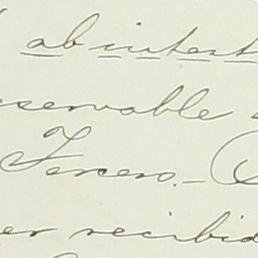 ab intest
servable
Tercero.—
er recibid